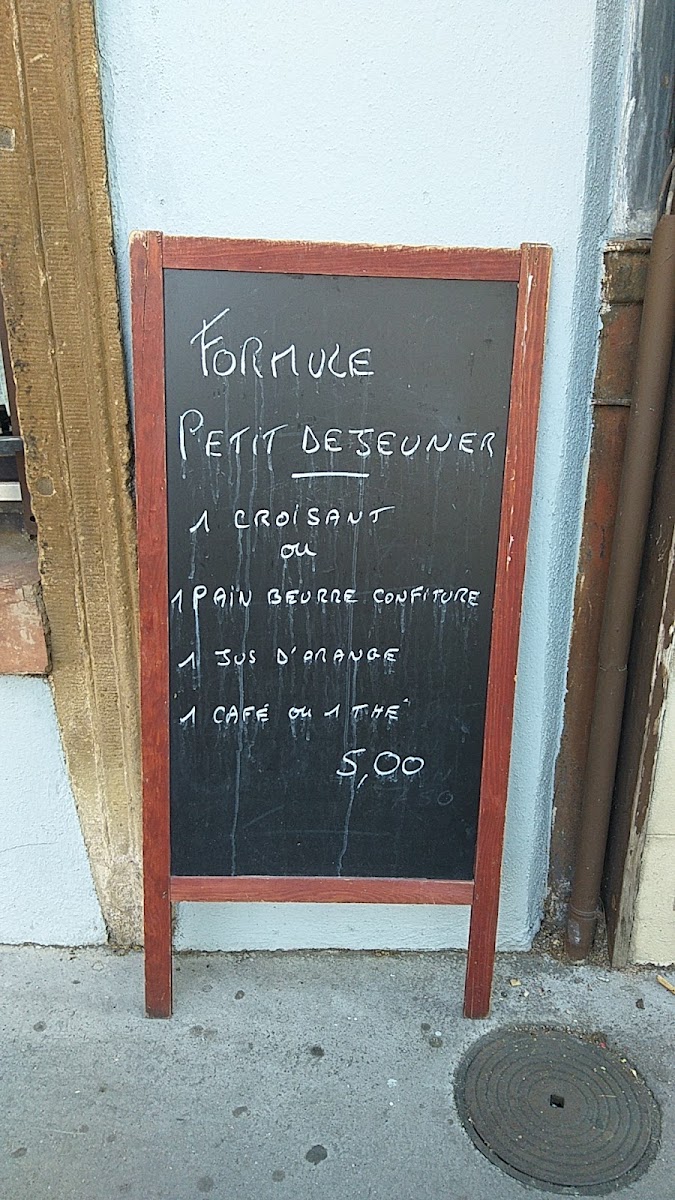 FORMULE
PETIT DEJEUNER
1 CROISANT
ou
1 PAIN BEURRE CONFITURE
1 JUS D'ORANGE
1 CAFÉ ou 1 THÉ
5,00